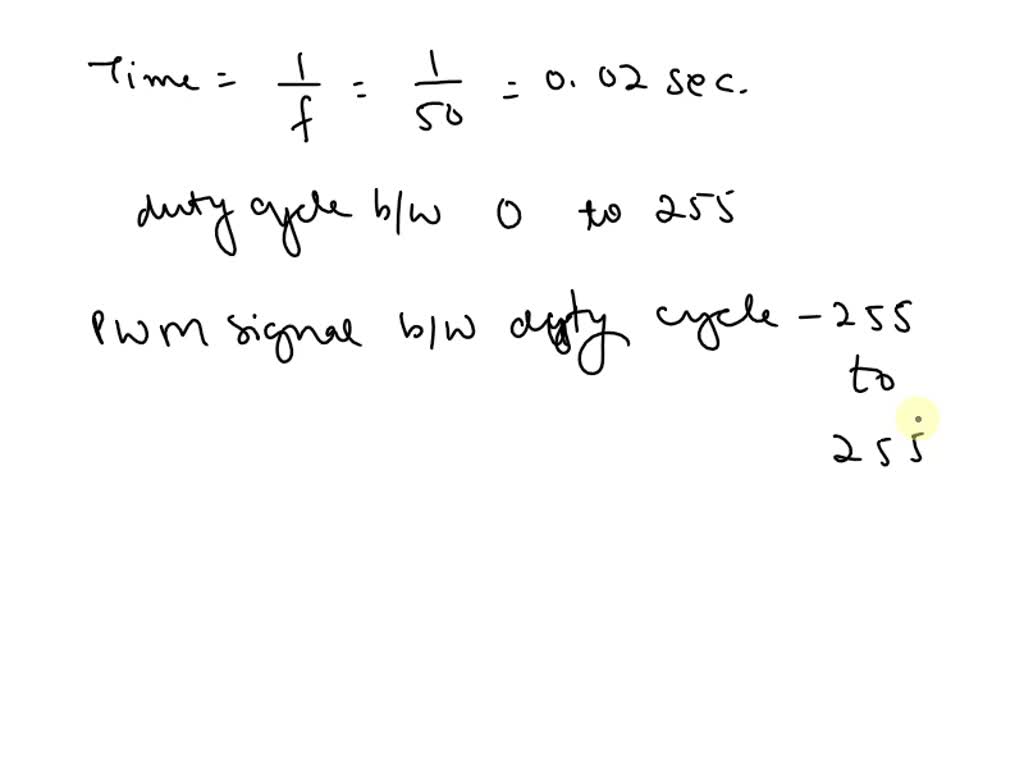 Time = 1/f = 1/50 = 0.02 sec.
duty cycle b/w 0 to 255
PWM signal b/w duty cycle - 255
to
255